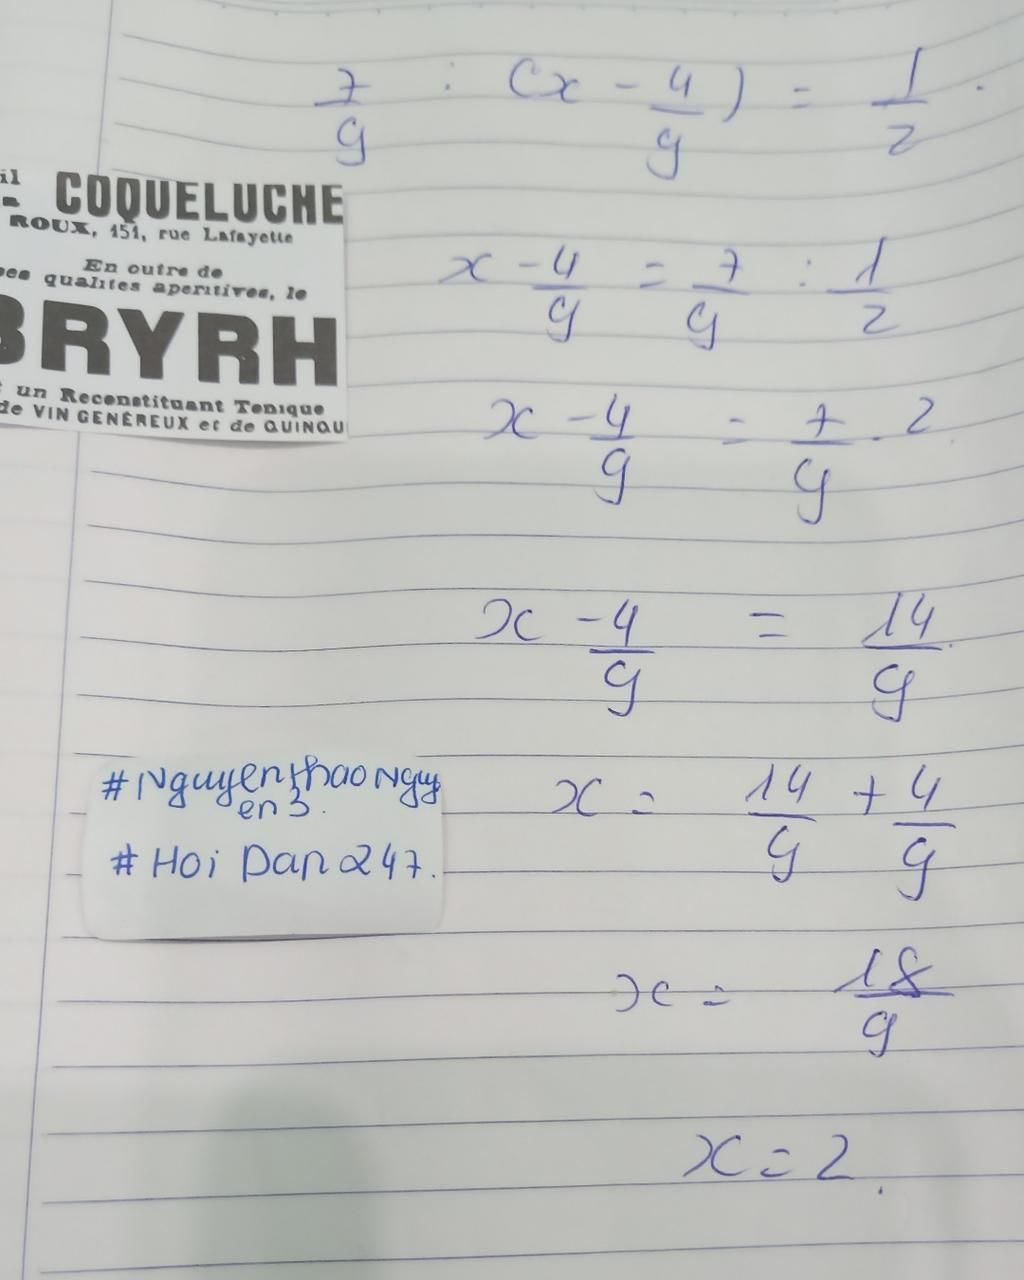 7/9 : (x - 4/9) = 1/2.
il COQUELUCHE
ROUX, 151, rue Lafayette
En outre de
qualites aperitives, le
BRYRH
un Reconstituant Tonique
de VIN GENÉREUX et de QUINQU
x - 4/9 = 7/9 : 1/2
x - 4/9 = 7/9 . 2
x - 4/9 = 14/9
#Nguyenthao Nguy
en3.
# Hoi Dan 247.
x = 14/9 + 4/9
x = 18/9
x = 2.